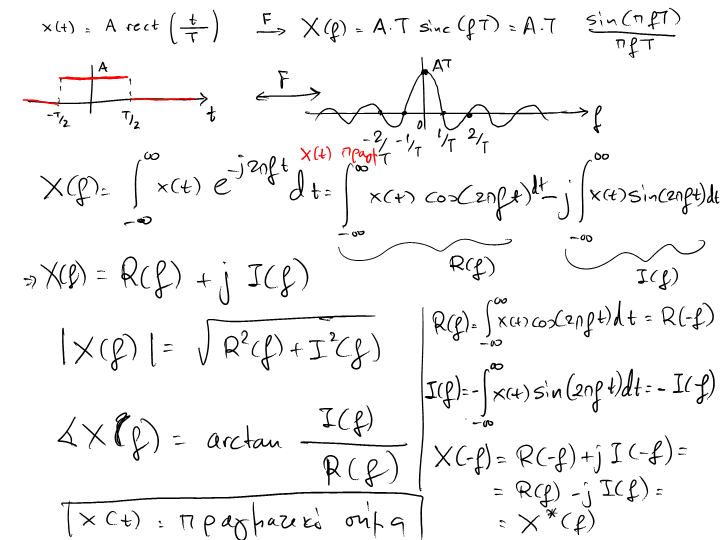 x(t) = A rect (t/T) F→ X(f) = A.T sinc(fT) = A.T sin(πfT)/πfT
A
-T/2 T/2 t
F
AT
-2/T -1/T 0 1/T 2/T f
x(t) πραγμ
X(f) = ∫_{-∞}^{∞} x(t) e^{-j2πft} dt = ∫_{-∞}^{∞} x(t) cos(2πft) dt - j ∫_{-∞}^{∞} x(t) sin(2πft) dt
R(f) I(f)
⇒ X(f) = R(f) + j I(f)
|X(f)| = √(R²(f) + I²(f))
∢X(f) = arctan I(f)/R(f)
x(t) : πραγματικό σήμα
R(f) = ∫_{-∞}^{∞} x(t) cos(2πft) dt = R(-f)
I(f) = -∫_{-∞}^{∞} x(t) sin(2πft) dt = - I(-f)
X(-f) = R(-f) + j I(-f) =
= R(f) - j I(f) =
= X*(f)